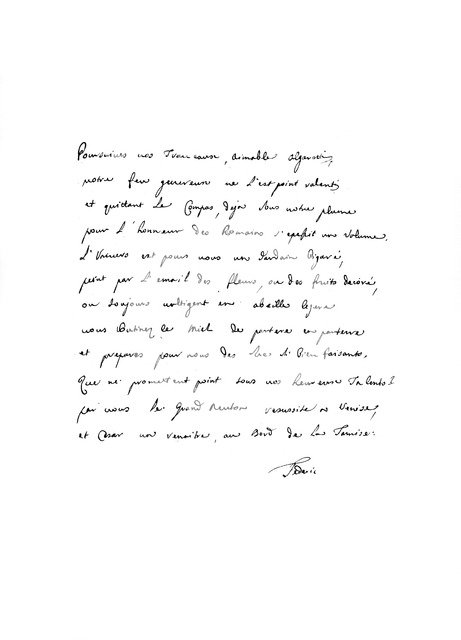 Poursuives vos Traveause, aimable algaroti,
votre feu genereuse ne s'est point ralenti
et quidant Le Compas, deja sous votre plume
pour L'honneur des Romains s'epessit un volume.
L'Univers est pour vous un Jardain Bigaré,
peint par L'email des fleurs, ou des fruits decoré,
ou toujours voltigent en abeille legere
vous butinez le miel de parterre en parterre
et prepares pour nous des
Que ne promettent point tous vos heureuse Talents?
par vous le Grand Neuton resussite a Venise,
et Cesar va renaitre, au Bord de La Tamise.
Federic